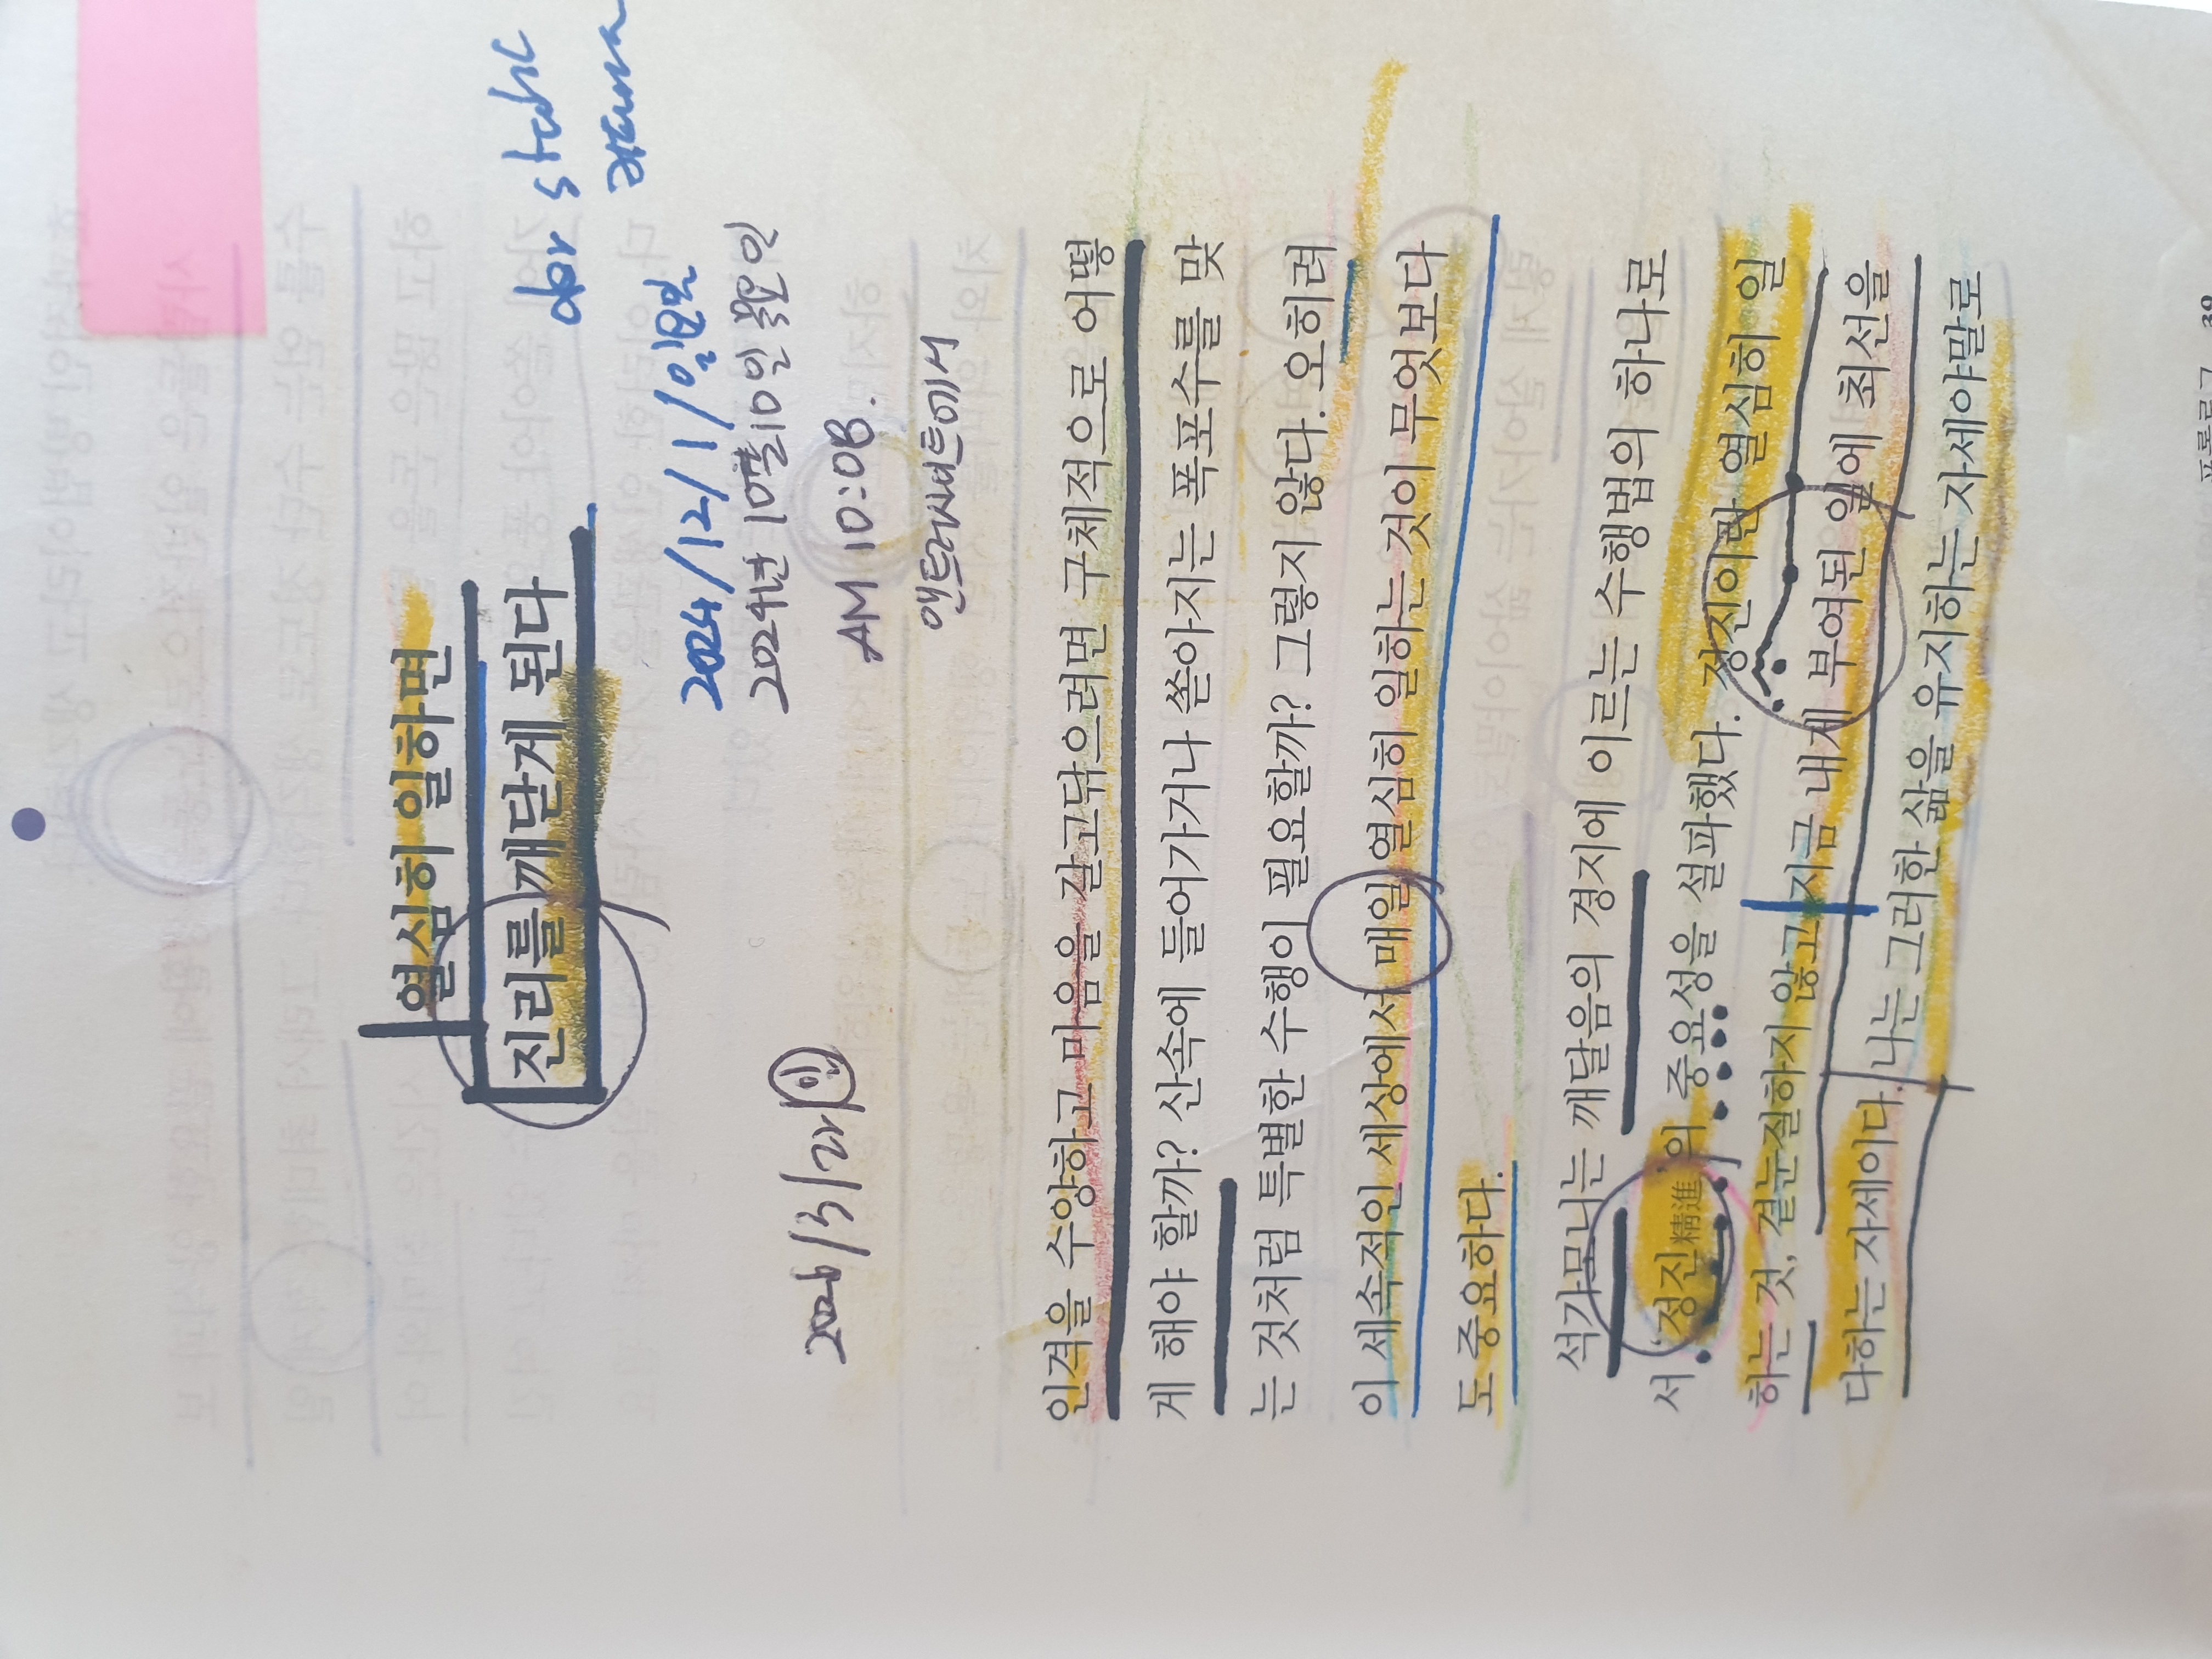 열심히 일하면
진리를 깨닫게 된다
2024/12/1/일요일
2024년 10월 10일 목요일
AM 10:08.
앤트러사이트에서
2026/3/22/일
인격을 수양하고 마음을 갈고닦으려면 구체적으로 어떻
게 해야 할까? 산속에 들어가거나 쏟아지는 폭포수를 맞
는 것처럼 특별한 수행이 필요할까? 그렇지 않다. 오히려
이 세속적인 세상에서 매일 열심히 일하는 것이 무엇보다
도 중요하다.
석가모니는 깨달음의 경지에 이르는 수행법의 하나로
서 ‘정진精進’의 중요성을 설파했다. 정진이란 열심히 일
하는 것, 곁눈질하지 않고 지금 내게 부여된 일에 최선을
다하는 자세이다. 나는 그러한 삶을 유지하는 자세야말로
프롤로그 39